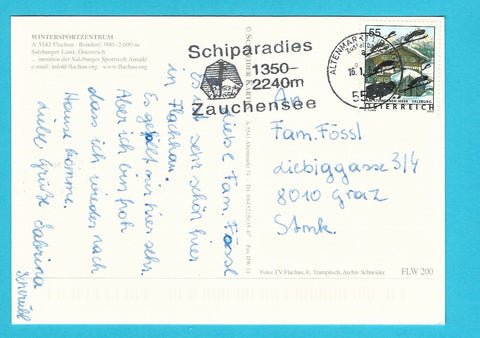 WINTERSPORTZENTRUM
A-5542 Flachau · Reitdorf, 900 - 2.600 m
Salzburger Land, Österreich
... inmitten der Salzburger Sportwelt Amadé
e-mail: info@flachau.org · www.flachau.org
Schiparadies
1350-
2240m
Zauchensee
ALTENMARKT
16.1.
55
ÖSTERREICH
Liebe Fam. Fössl
Es ist sehr schön hier
in Flachau.
Es gefällt mir hier sehr.
Aber ich bin froh
dass ich wieder nach
Hause komme.
Liebe Grüße Sabrina
An
Fam. Fössl
Liebiggasse 3/4
8010 Graz
Stmk.
Foto: TV Flachau, E. Trampitsch, Archiv Schneider
FLW 200